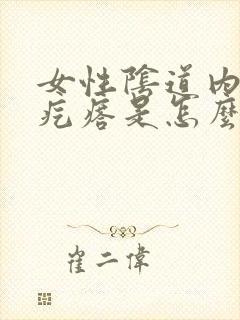 女性陰道内
疙瘩是怎麼
崔二偉